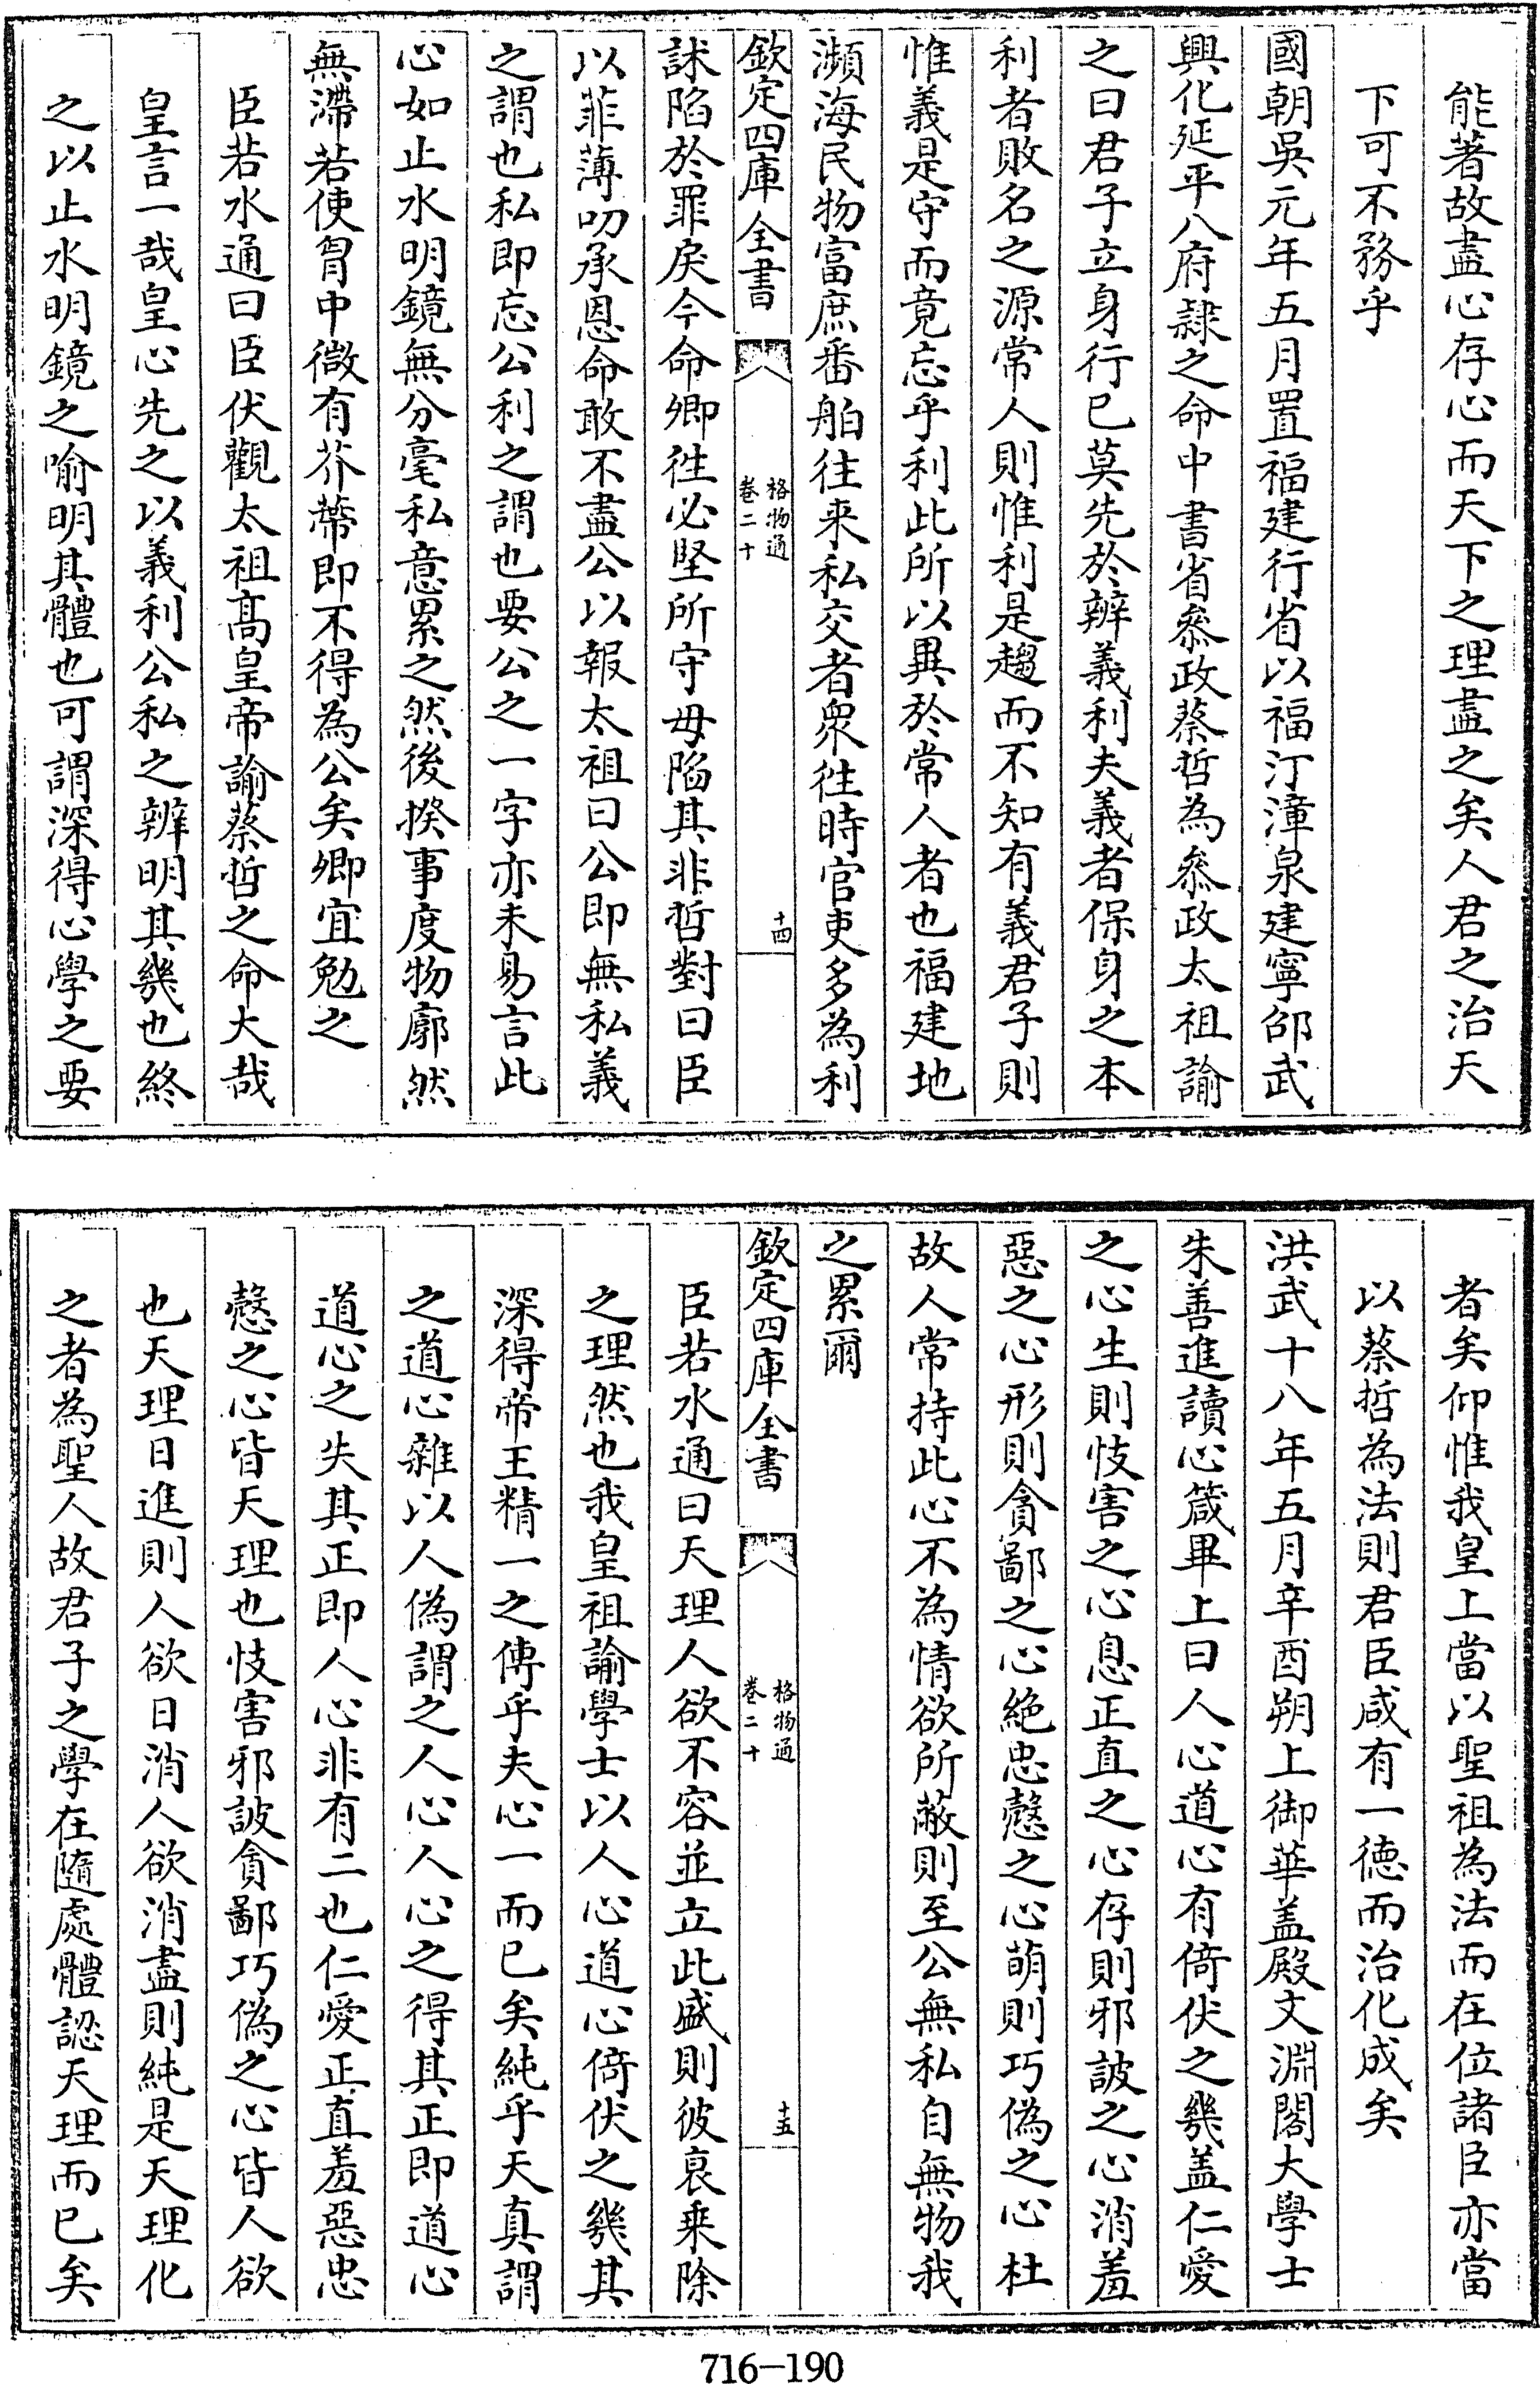 能著故盡心存心而天下之理盡之矣人君之治天
下可不務乎
國朝吳元年五月置福建行省以福汀漳泉建寧邵武
興化延平八府隷之命中書省叅政蔡哲為叅政太祖諭
之曰君子立身行已莫先於辨義利夫義者保身之本
利者敗名之源常人則惟利是趨而不知有義君子則
惟義是守而竟忘乎利此所以異於常人者也福建地
瀕海民物富庶番舶往來私交者衆徃時官吏多為利
欽定四庫全書
格物通
卷二十
十四
訹陷於罪戾今命卿徃必堅所守毋陷其非哲對曰臣
以菲薄叨承恩命敢不盡公以報太祖曰公即無私義
之謂也私即忘公利之謂也要公之一字亦未易言此
心如止水明鏡無分毫私意累之然後揆事度物廓然
無滯若使胷中微有芥蔕即不得為公矣卿宜勉之
臣若水通曰臣伏觀太祖髙皇帝諭蔡哲之命大哉
皇言一哉皇心先之以義利公私之辨明其幾也終
之以止水明鏡之喻明其體也可謂深得心學之要
者矣仰惟我皇上當以聖祖為法而在位諸臣亦當
以蔡哲為法則君臣咸有一德而治化成矣
洪武十八年五月辛酉朔上御華盖殿文淵閣大學士
朱善進讀心箴畢上曰人心道心有倚伏之幾盖仁愛
之心生則忮害之心息正直之心存則邪詖之心消羞
惡之心形則貪鄙之心絶忠慤之心萌則巧偽之心杜
故人常持此心不為情欲所蔽則至公無私自無物我
之累爾
欽定四庫全書
格物通
卷二十
十五
臣若水通曰天理人欲不容並立此盛則彼衰乗除
之理然也我皇祖諭學士以人心道心倚伏之幾其
深得帝王精一之傳乎夫心一而已矣純乎天真謂
之道心雜以人偽謂之人心人心之得其正即道心
道心之失其正即人心非有二也仁愛正直羞惡忠
慤之心皆天理也忮害邪詖貪鄙巧偽之心皆人欲
也天理日進則人欲日消人欲消盡則純是天理化
之者為聖人故君子之學在隨處體認天理而已矣
716-190